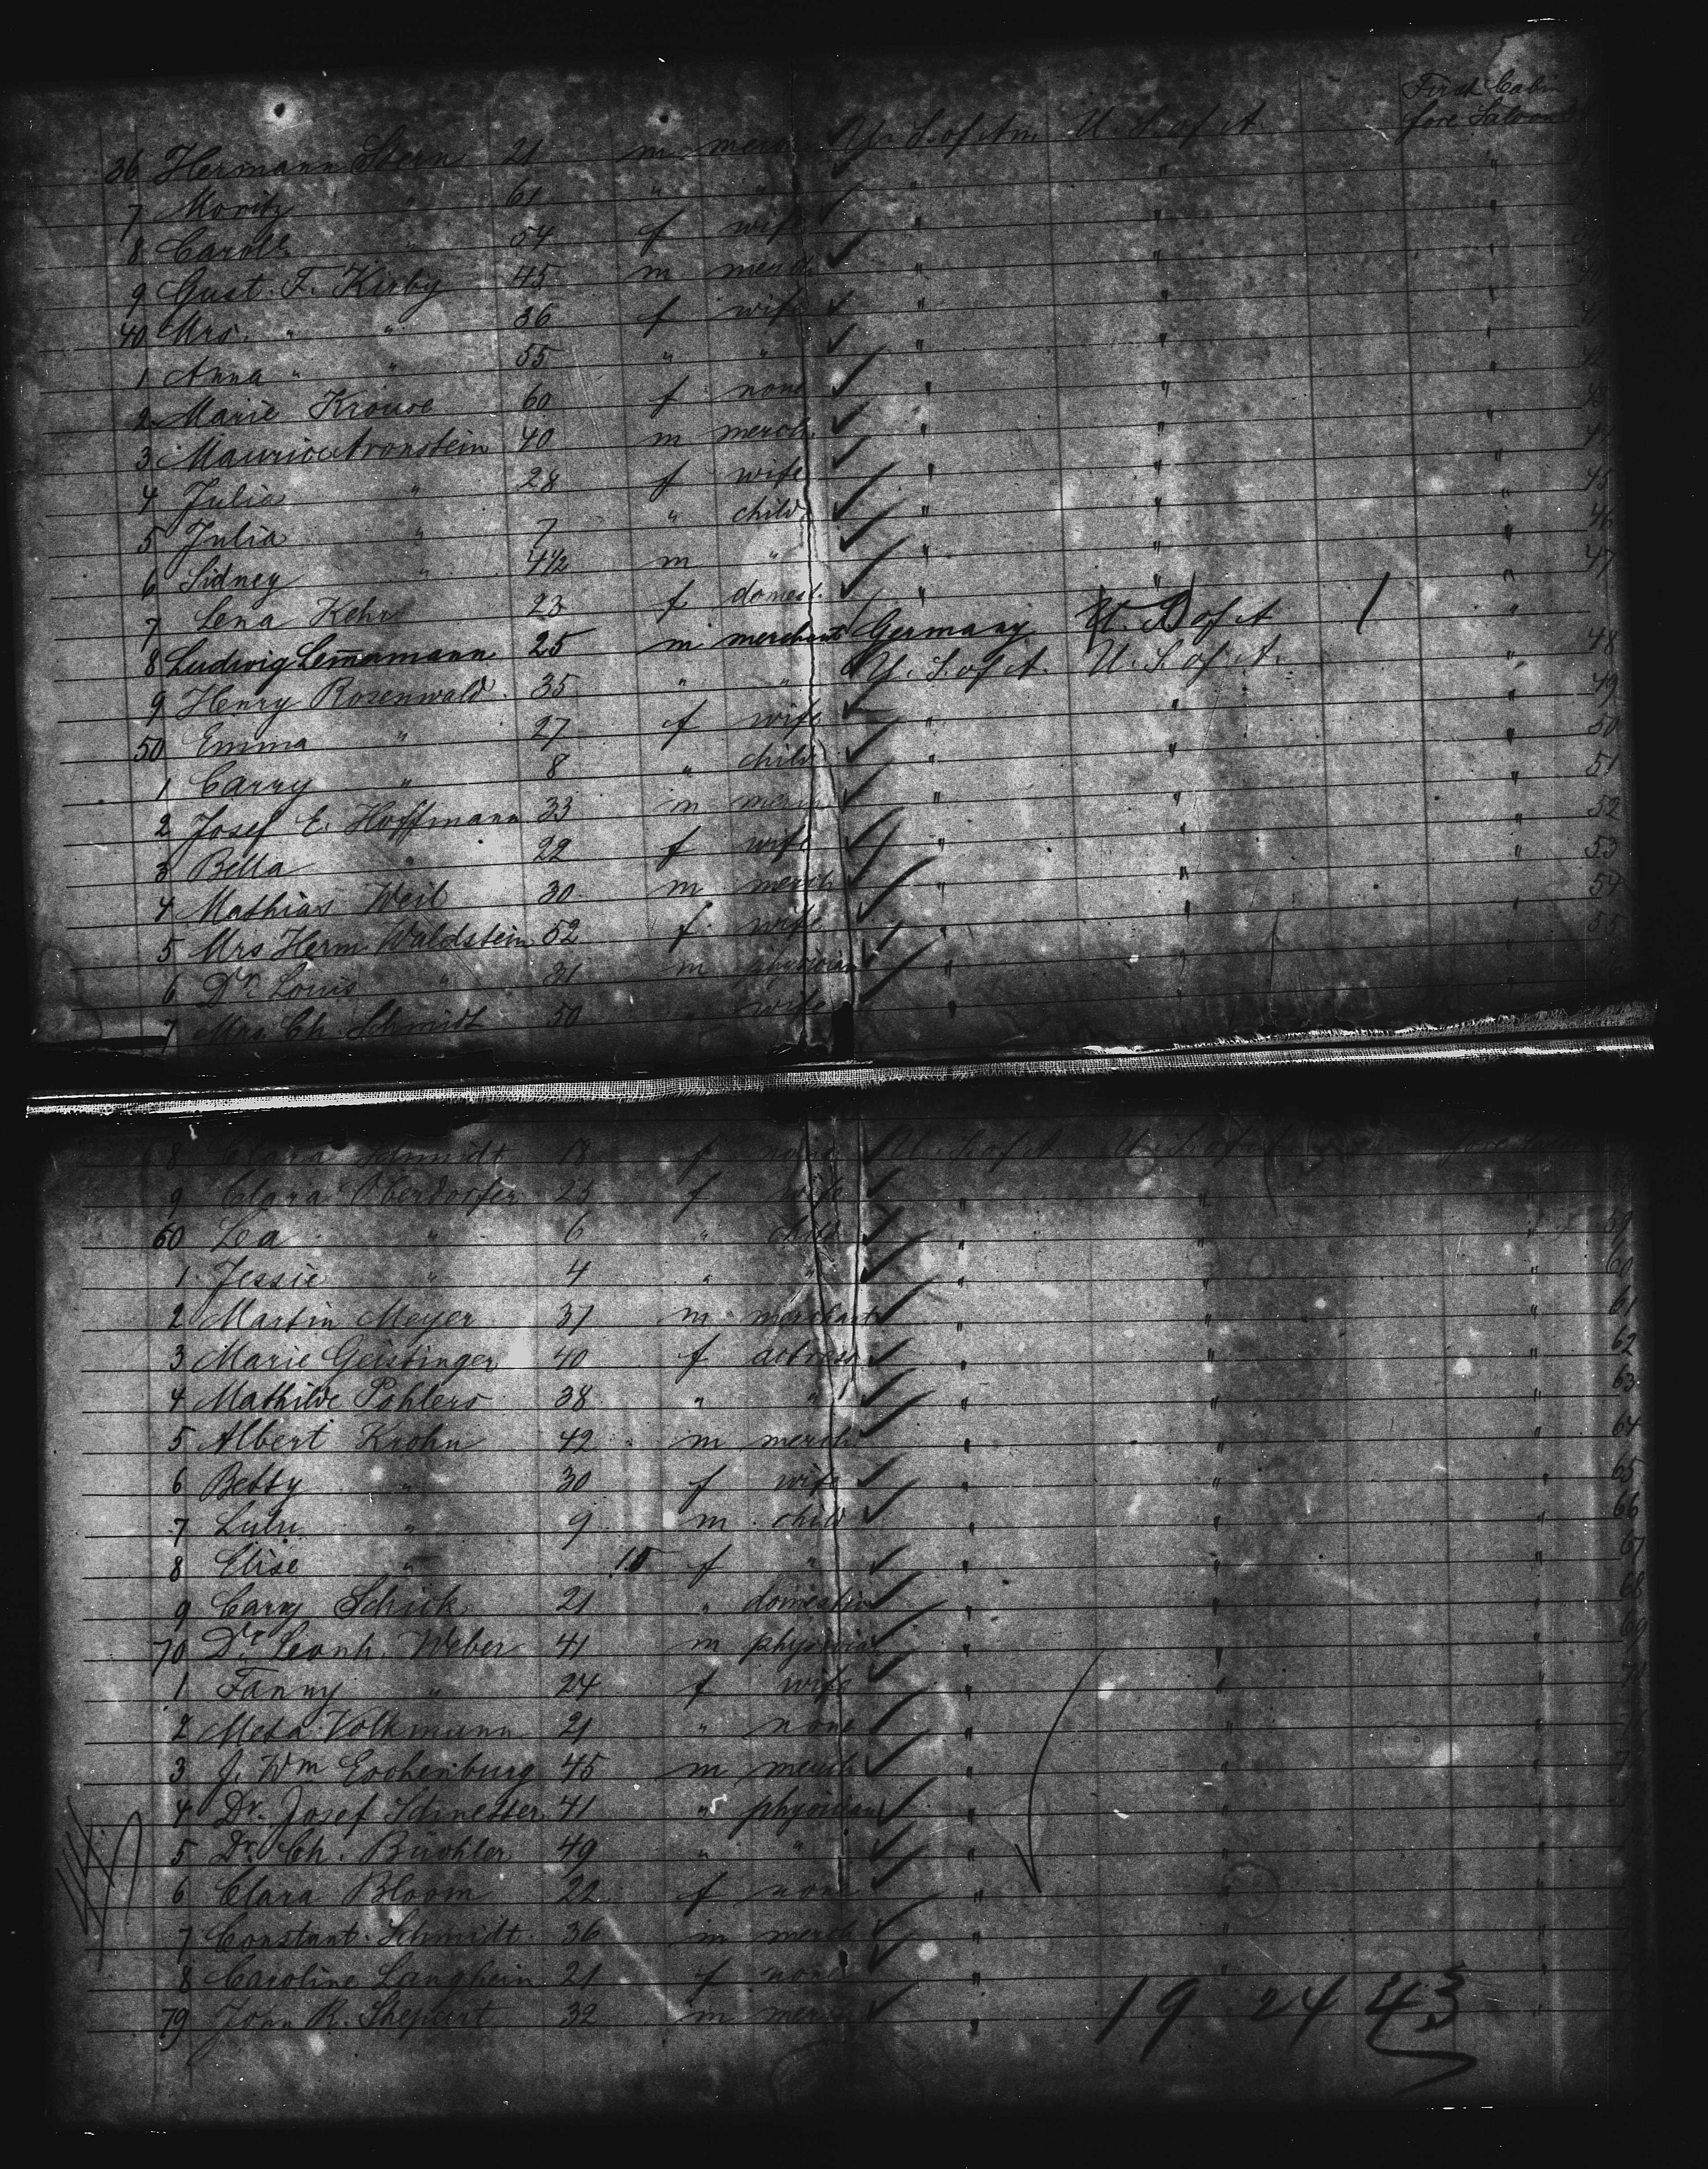 First Cabin
36 Hermann Stern 21 m merch. U. S. of Am. U. S. of A. fore Saloon
7 Moritz " 61 " " " " "
8 Carol. " 54 f wife " " "
9 Gust. F. Kirby 45 m merch. " " "
40 Mrs. " " 36 f wife " " "
1 Anna " " 55 " " " " "
2 Marie Krouse 60 f none " " " 42
3 Maurice Aronstein 40 m merch. " " " 43
4 Julia " 28 f wife " " " 44
5 Julia " 7 " child " " " 45
6 Sidney " 4 1/2 m " " " " 46
7 Lena Kehr 23 f domest. " " " 47
8 Ludwig Lemmmann 25 m merchant Germany U. S of A 1 "
9 Henry Rosenwald 35 " " U. S. of A. U. S. of A. " 48
50 Emma " 27 f wife " " " 49
1 Carry " 8 " child " " " 50
2 Josef E. Hoffmann 33 m merch " " " 51
3 Bella " 22 f wife " " " 52
4 Mathias Weil 30 m merch " " " 53
5 Mrs Herm. Waldstein 52 f wife " " " 54
6 Dr. Louis " 31 m physician " " " 55
7 Mrs. Ch. Schmidt 50 " wife " "
8 Clara Schmidt 18 f none U. S. of A U. S. of A
9 Clara Oberdorfer 23 f wife " " "
60 Lea " 6 " child " " " 59
1 Jessie " 4 " " " " " 60
2 Martin Meyer 37 m merchant " " " 61
3 Marie Geistinger 40 f actress " " " 62
4 Mathilde Pohlers 38 " " " " " 63
5 Albert Krohn 42 m merch. " " " 64
6 Betty " 30 f wife " " " 65
7 Lulu " 9 m child " " " 66
8 Elise " 10 f " " " " 67
9 Cary Schick 21 " domestic " " " 68
70 Dr. Leonh. Weber 41 m physician " " " 69
1 Fanny " 24 f wife " " " 70
2 Meta Volkmann 21 " none " " "
3 J. Wm Eschenburg 45 m merch " " "
4 Dr. Josef Schnetter 41 " physician " " "
5 Dr. Ch. Buchler 49 " " " " "
6 Clara Bloom 22 f none " " "
7 Constant. Schmidt 36 m merch " " "
8 Caroline Langhein 21 f none " " "
79 John R. Shepart 32 m merch " "
19 24 43